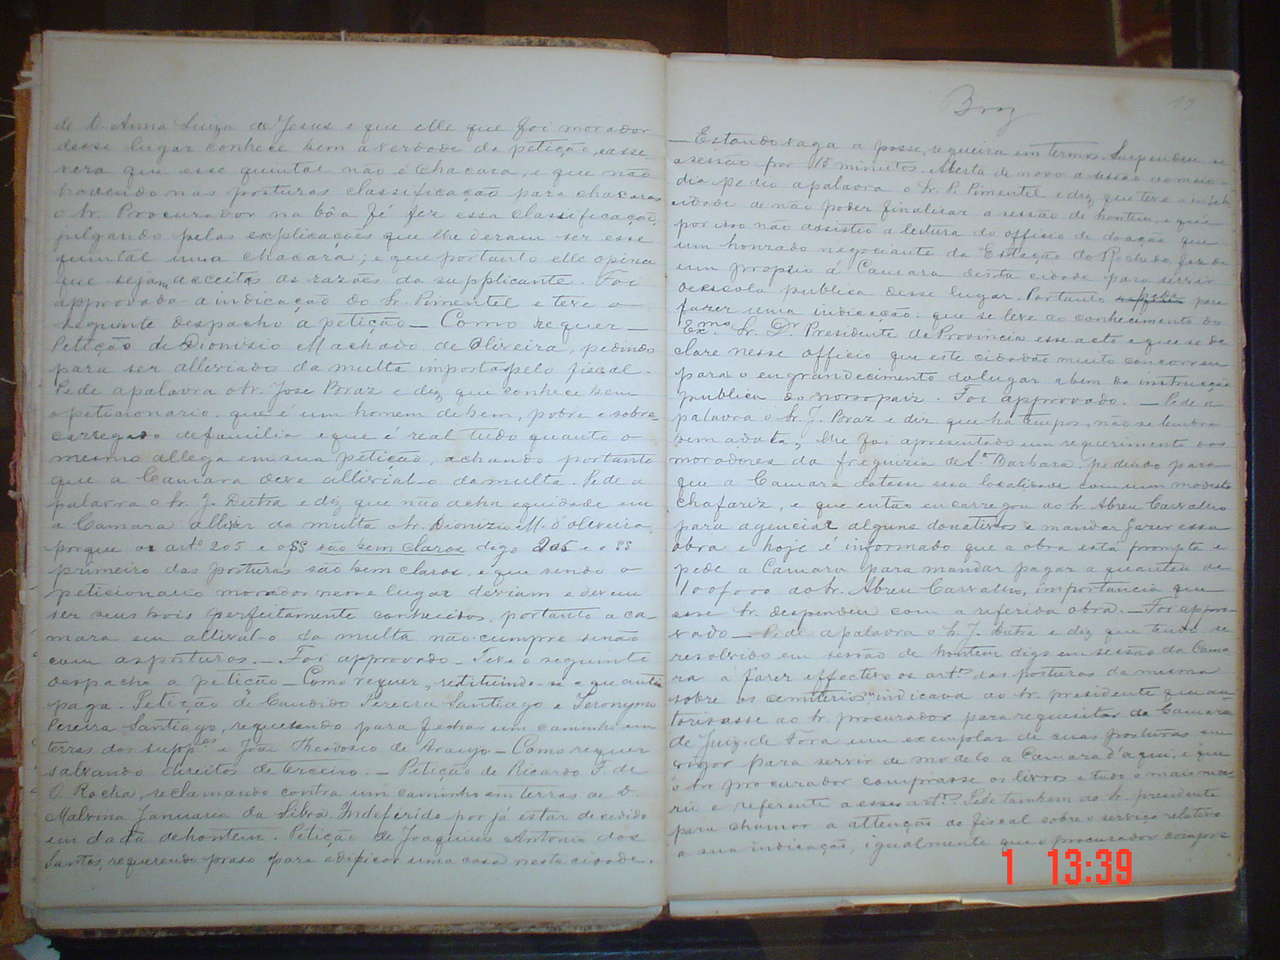 de D. Anna Luiza de Jesus e que elle que foi morador
desse lugar conhece bem a verdade da petição, e asse
vera que esse quintal não é chacara, e que não
havendo nas posturas classificação para chacaras
o Sr. Procurador na bôa fé fez essa classificação,
julgando pelas explicações que lhe deram ser esse
quintal uma chacara; e que portanto elle opina
que sejam acceitas as razões da supplicante. Foi
approvada a indicação do Sr. Pimentel e teve o
seguinte despacho a petição — Como requer —
Petição de Dionizio Machado de Oliveira, pedindo
para ser alliviado da multa imposta pelo fiscal.
Pede a palavra o Sr. Jose Braz e diz que conhece bem
o peticionario, que é um homem de bem, pobre e sobre
carregado de familia e que é real tudo quanto o
mesmo allega em sua petição, achando portanto
que a Camara deve allivial-o da multa. Pede a
palavra o Sr. J. Dutra e diz que não acha equidade em
a Camara alliviar da multa o Sr. Dionizio M. d'Oliveira
porque os artº 205 e o §§ são bem claros digo 205 e o §§
primeiro das posturas são bem claros, e que sendo o
peticionario morador nesse lugar deviam e devem
ser seus bois perfeitamente conhecidos, portanto a ca-
mara em allivial-o da multa não cumpre senão
com as posturas. — Foi approvado — Teve o seguinte
despacho a petição — Como requer, restituindo-se a quantia
paga. Petição de Candido Pereira Santiago e Jeronymo
Pereira Santiago, requerendo para fechar um caminho em
terras dos suppes e João Theodosio de Araujo — Como requer
salvando direitos de terceiro. — Petição de Ricardo F. de
O. Rocha, reclamando contra um caminho em terras de D.
Malvina Januaria da Silva. Indeferido por já estar decidido
em data de hontem. Petição de Joaquim Antonio dos
Santos, requerendo praso para edificar uma casa nesta cidade.
Braz
— Estando vaga a posse, requeira em termos. Suspendeu-se
a sessão por 15 minutos. Aberta de novo a sessão ao meio
dia pedio a palavra o Sr. P. Pimentel e diz que teve
de não poder finalisar a sessão de hontem, e que
por isso não assistio a leitura do officio de doação que
um honrado negociante da Estação do Rochedo fez de
um proprio á Camara desta cidade para servir
de escola publica desse lugar. Portanto para
fazer uma indicação: que se leve ao conhecimento do
Exmo Sr. Dr. Presidente de Provincia esse acto e que se de
clare nesse officio que este cidadão muito concorreu
para o engrandecimento do lugar a bem da instrucção
publica do nosso paiz. Foi approvado. — Pede a
palavra o Sr. J. Braz e diz que ha tempos, não se lembra
bem a data, lhe foi apresentado um requerimento dos
moradores da freguezia de Sta Barbara, pedindo para
que a Camara dotasse essa localidade com um modesto
chafariz, e que então encarregou ao Sr. Abreu Carvalho
para agenciar alguns donativos e mandar fazer essa
obra e hoje é informado que a obra está prompta e
pede a Camara para mandar pagar a quantia de
100$000 ao Sr. Abreu Carvalho, importancia que
esse Sr. despendeu com a referida obra. — Foi appro-
vado — Pede a palavra o Sr. J. Dutra e diz que tendo se
resolvido em sessão de hontem digo em sessão da Cama
ra a fazer effectivo os artos das posturas da mesma
sobre os cemiterios, indicava ao Sr. presidente que au
torisasse ao Sr. procurador para requisitar da Camara
de Juiz de Fora um exemplar de suas posturas em
vigor para servir de modelo a Camara d'aqui, e que
o Sr. procurador comprasse os livros e tudo o mais
e referente a esses artos. Pede tambem ao Sr. presidente
para chamar a attenção do fiscal sobre o serviço relativo
a sua indicação, igualmente que o procurador compre
1 13:39